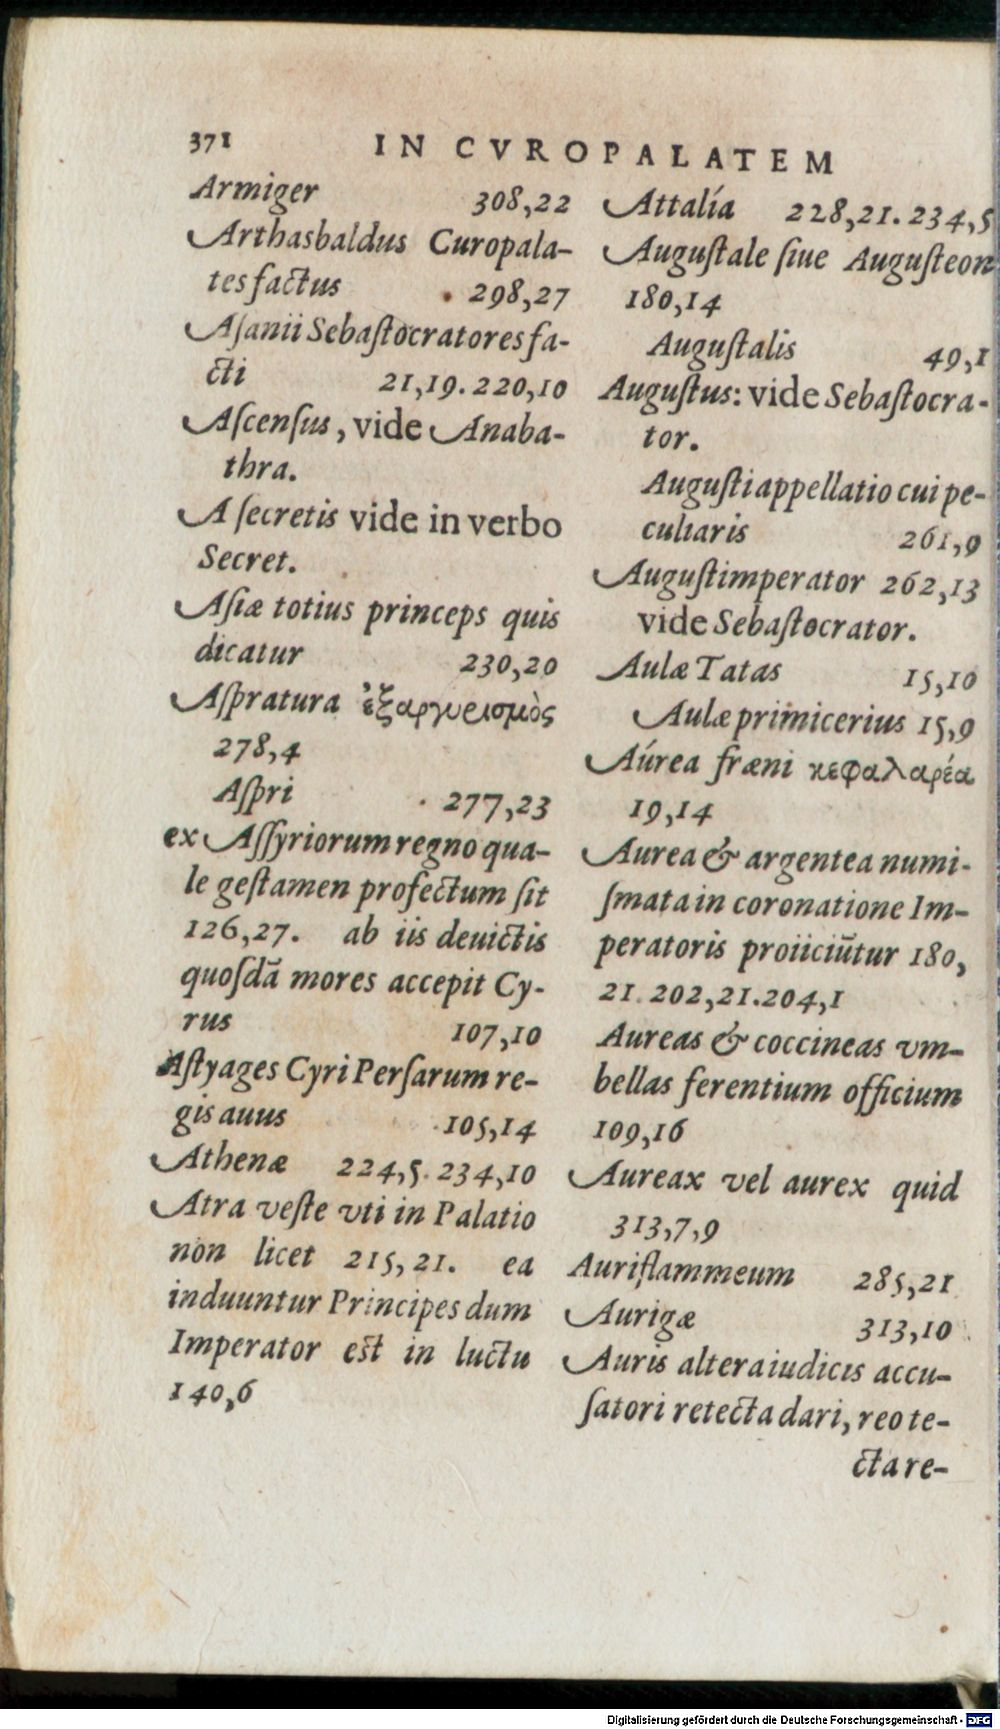 371 IN CVROPALATEM
Armiger 308,22
Arthasbaldus Curopala-
tes factus 298,27
Aſanii Sebaſtocratores fa-
cti 21,19. 220,10
Aſcenſus, vide Anaba-
thra.
A ſecretis vide in verbo
Secret.
Aſiæ totius princeps quis
dicatur 230,20
Aſpratura ἐξαργυρισμὸς
278,4
Aſpri 277,23
ex Aſſyriorum regno qua-
le geſtamen profectum ſit
126,27. ab iis deuictis
quoſdā mores accepit Cy-
rus 107,10
Aſtyages Cyri Perſarum re-
gis auus 105,14
Athenæ 224,5. 234,10
Atra veſte vti in Palatio
non licet 215,21. ea
induuntur Principes dum
Imperator eſt in luctu
140,6
Attalía 228,21. 234,5
Auguſtale ſiue Auguſteon
180,14
Auguſtalis 49,1
Auguſtus: vide Sebaſtocra-
tor.
Auguſti appellatio cui pe-
culiaris 261,9
Auguſt imperator 262,13
vide Sebaſtocrator.
Aulæ Tatas 15,10
Aulæ primicerius 15,9
Aúrea fræni κεφαλαρέα
19,14
Aurea & argentea numi-
ſmata in coronatione Im-
peratoris proiiciūtur 180,
21. 202,21. 204,1
Aureas & coccineas vm-
bellas ferentium officium
109,16
Aureax vel aurex quid
313,7,9
Auriflammeum 285,21
Aurigæ 313,10
Auris altera iudicis accu-
ſatori retecta dari, reo te-
cta re-
Digitalisierung gefördert durch die Deutsche Forschungsgemeinschaft - DFG